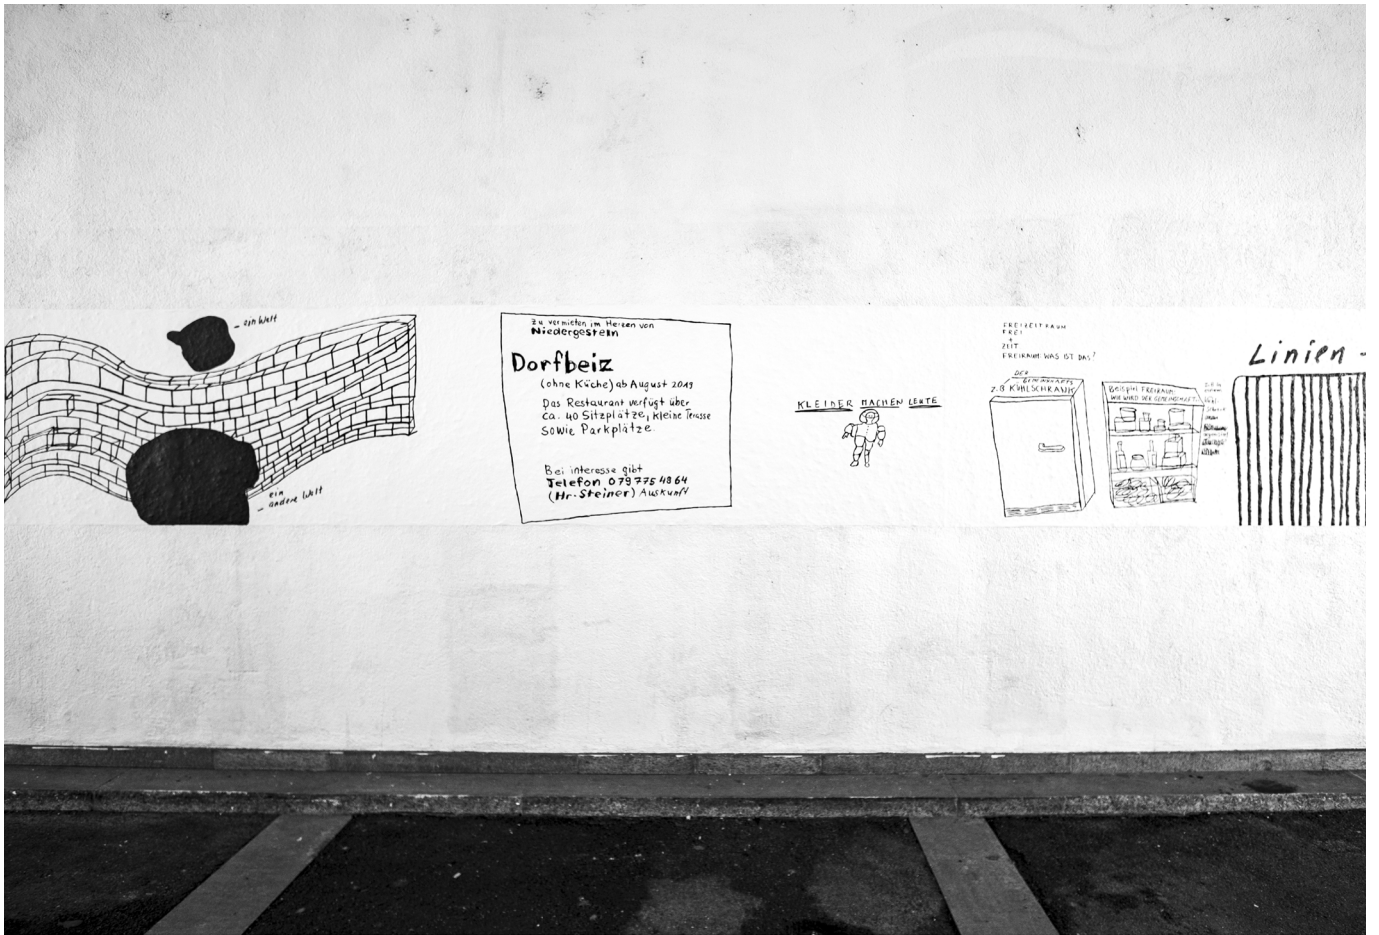 ein Welt
ein
andere Welt
zu vermieten im Herzen von
Niedergesteln
Dorfbeiz
(ohne Küche) ab August 2019
Das Restaurant verfügt über
ca. 40 Sitzplätze, kleine Terasse
sowie Parkplätze.
Bei interesse gibt
Telefon 079 775 48 64
(Hr. Steiner) Auskunft
KLEIDER MACHEN LEUTE
FREIZEITRAUM
FREI
+
ZEIT
FREIRAUM WAS IST DAS?
DER
GEMEINSCHAFTS
Z.B KÜHLSCHRANK
Beispiel FREIRAUM
WIE WIRD DER GEMEINSCHAFT
Linien -